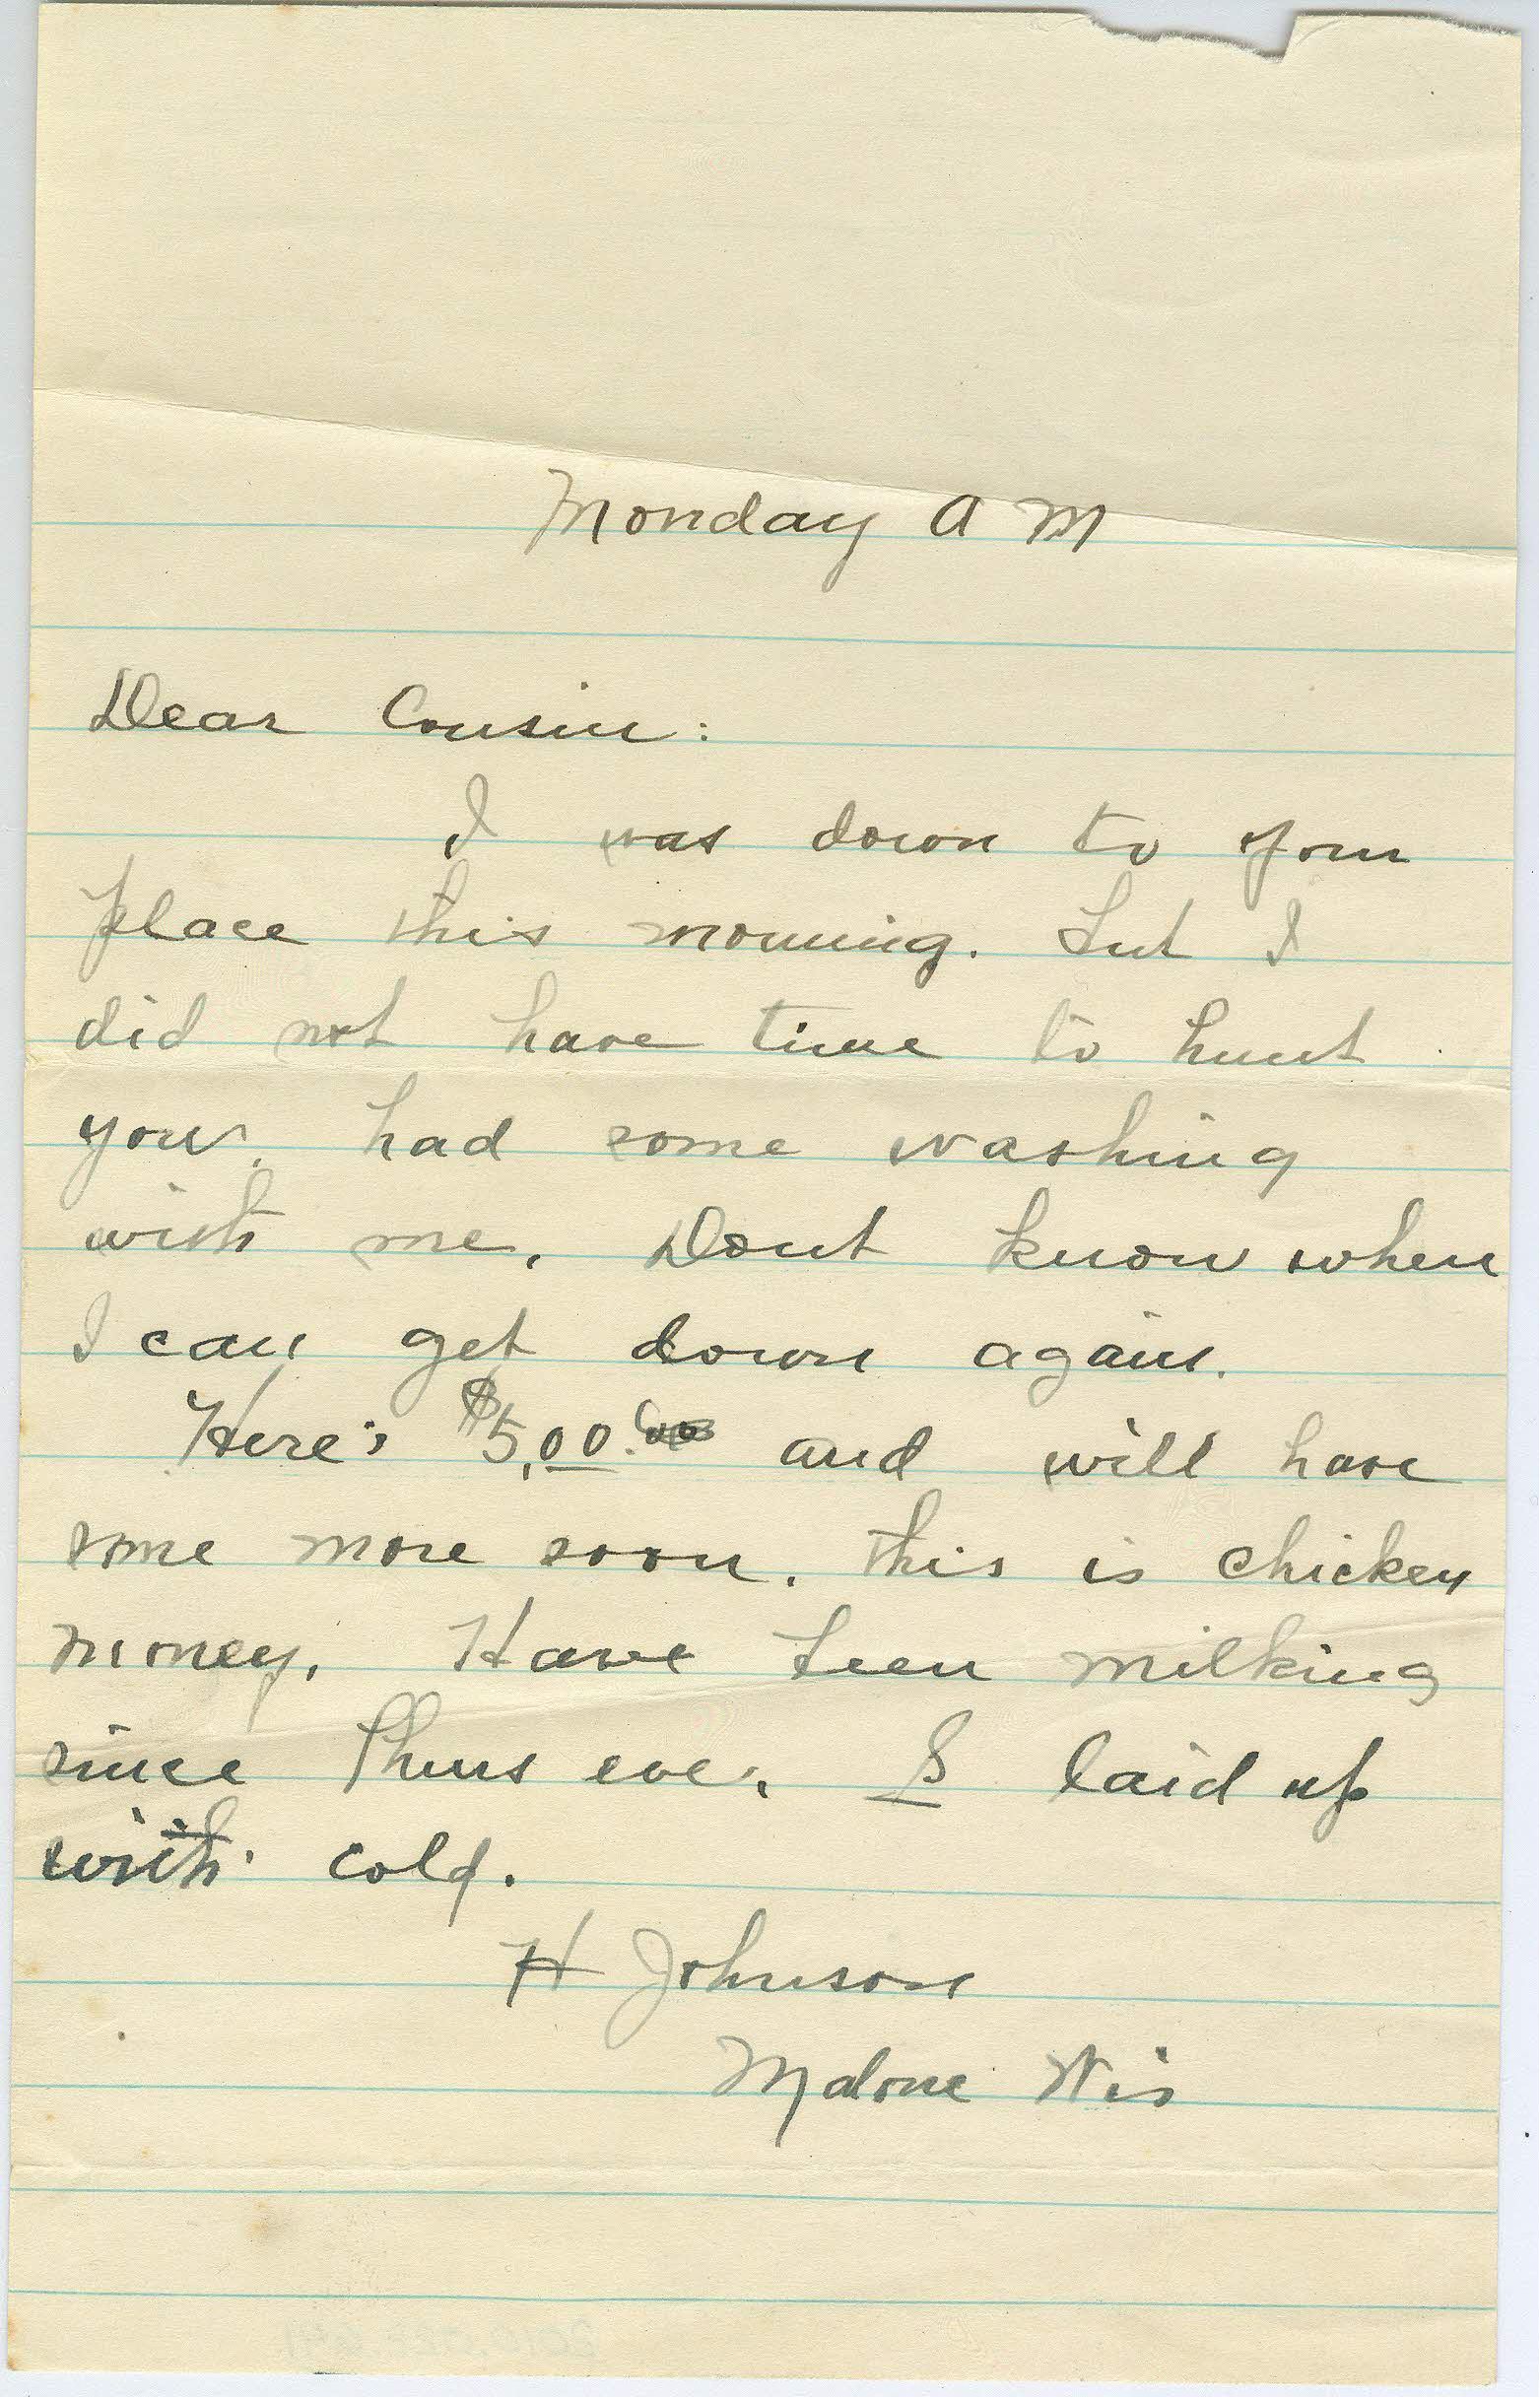 Monday A M
Dear Cousin:
I was down to your
place this morning. but I
did not have time to hunt
you. had some washing
with me. Dont know when
I can get down again.
Here's $5.00 and will have
some more soon. this is chicken
money. Have been milking
since Thurs eve. S laid up
with cold.
H Johnson
Malone Wis